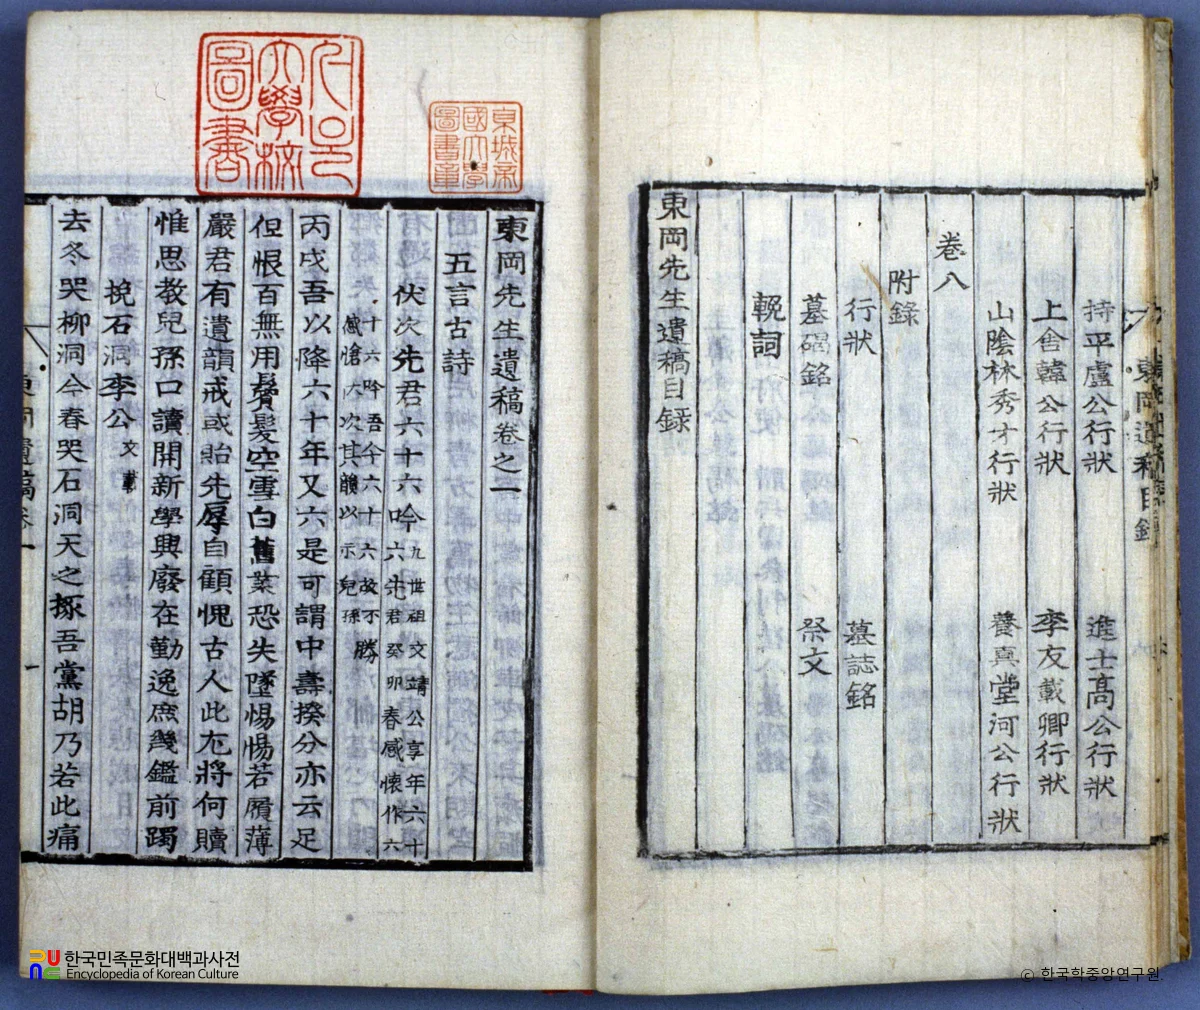 持平盧公行狀　進士高公行狀
上舍韓公行狀　李友載卿行狀
山陰林秀才行狀　養真堂河公行狀
卷八
附錄
行狀　墓誌銘
墓碣銘　祭文
輓詞
東岡先生遺稿目録
東岡遺稿目錄
京城帝
國大學
圖書章
大學校
圖書
東岡先生遺稿卷之一
五言古詩
伏次先君六十六吟
九世祖文靖公享年六十
六先君癸卯春感懷作六
十六吟吾今六十六故不勝
感愴伏次其韻以示兒孫
丙戌吾以降六十年又六是可謂中壽揆分亦云足
但恨百無用鬢髮空雪白舊業恐失墜惕惕若履薄
嚴君有遺韻戒或貽先辱自顧愧古人此尤將何贖
惟思教兒孫口讀開新學興廢在勤逸庶幾鑑前躅
挽石洞李公
文載
去冬哭柳洞今春哭石洞天之椓吾黨胡乃若此痛
東岡遺稿卷一
一
한국민족문화대백과사전
Encyclopedia of Korean Culture
© 한국학중앙연구원